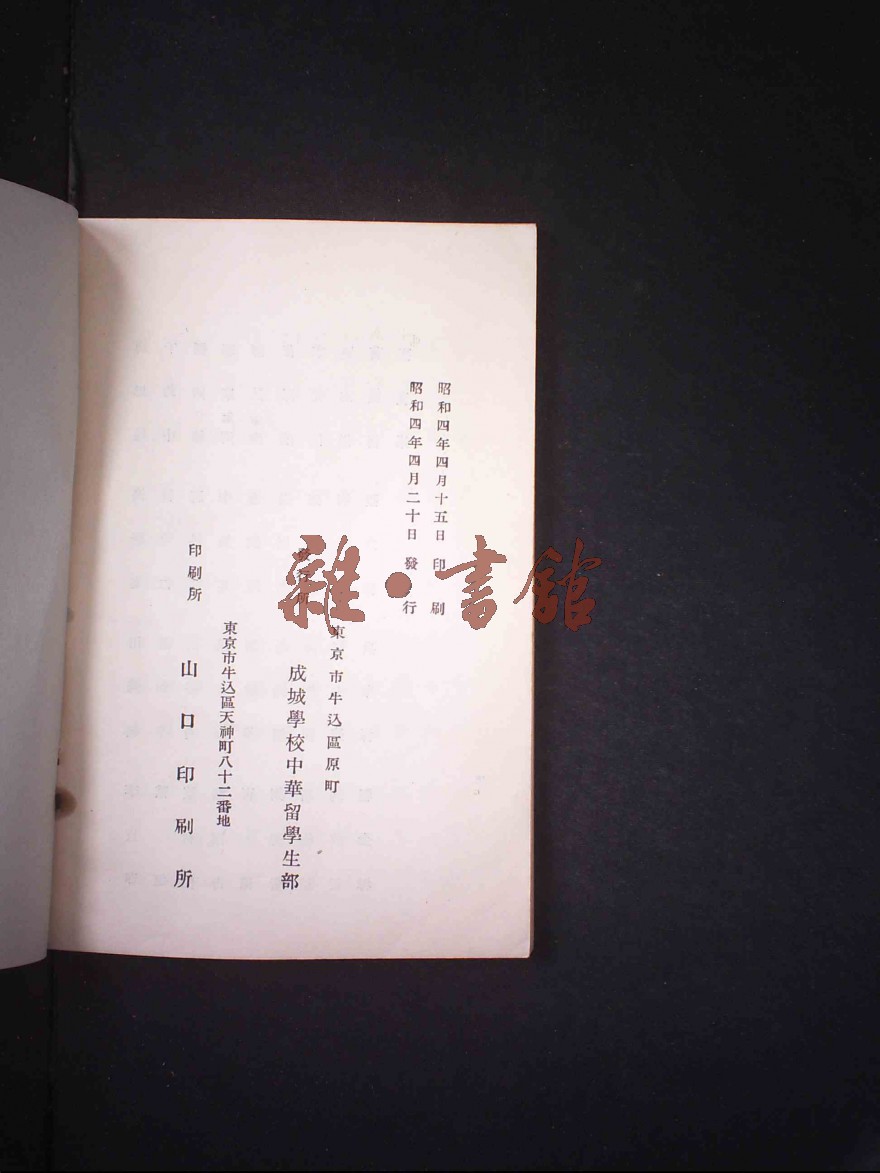 昭和四年四月十五日 印 刷
昭和四年四月二十日 發 行
東京市牛込區原町
發行所 成城學校中華留學生部
東京市牛込區天神町八十二番地
印刷所 山口印刷所
雜·書館